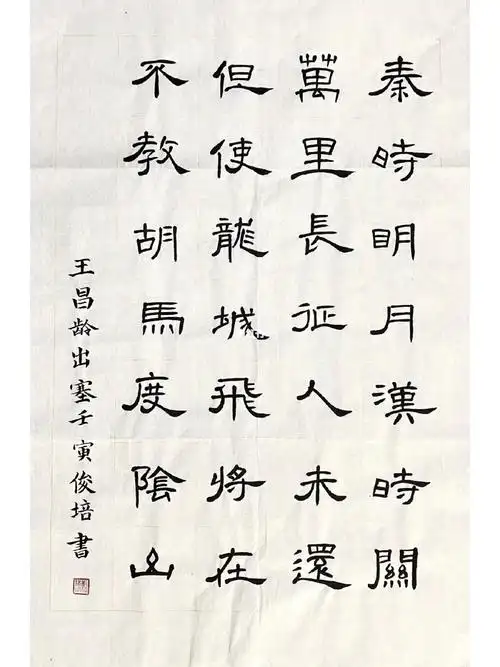 秦時明月漢時關
萬里長征人未還
但使龍城飛將在
不教胡馬度陰山
王昌龄出塞壬寅俊培書